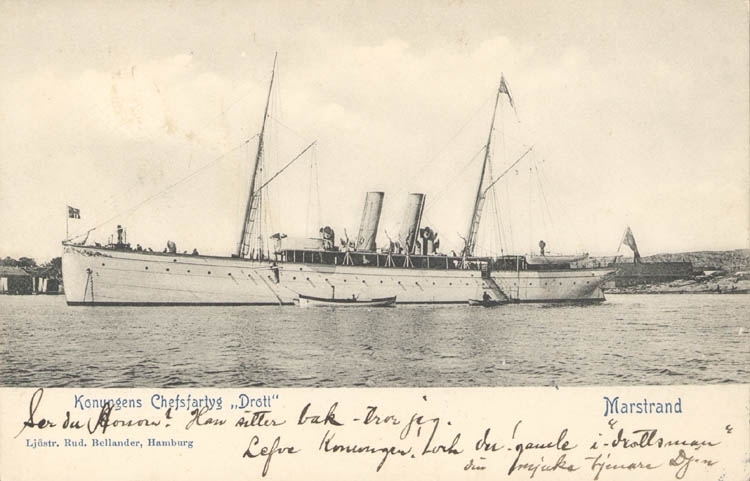 Konungens Chefsfartyg „Drott“
Marstrand
Ser du Honom? Han sitter bak - tror jag.
Ljüstr. Rud. Bellander, Hamburg
Lefve Konungen! och du! gamle i "drottsman"
din mjuka tjenare